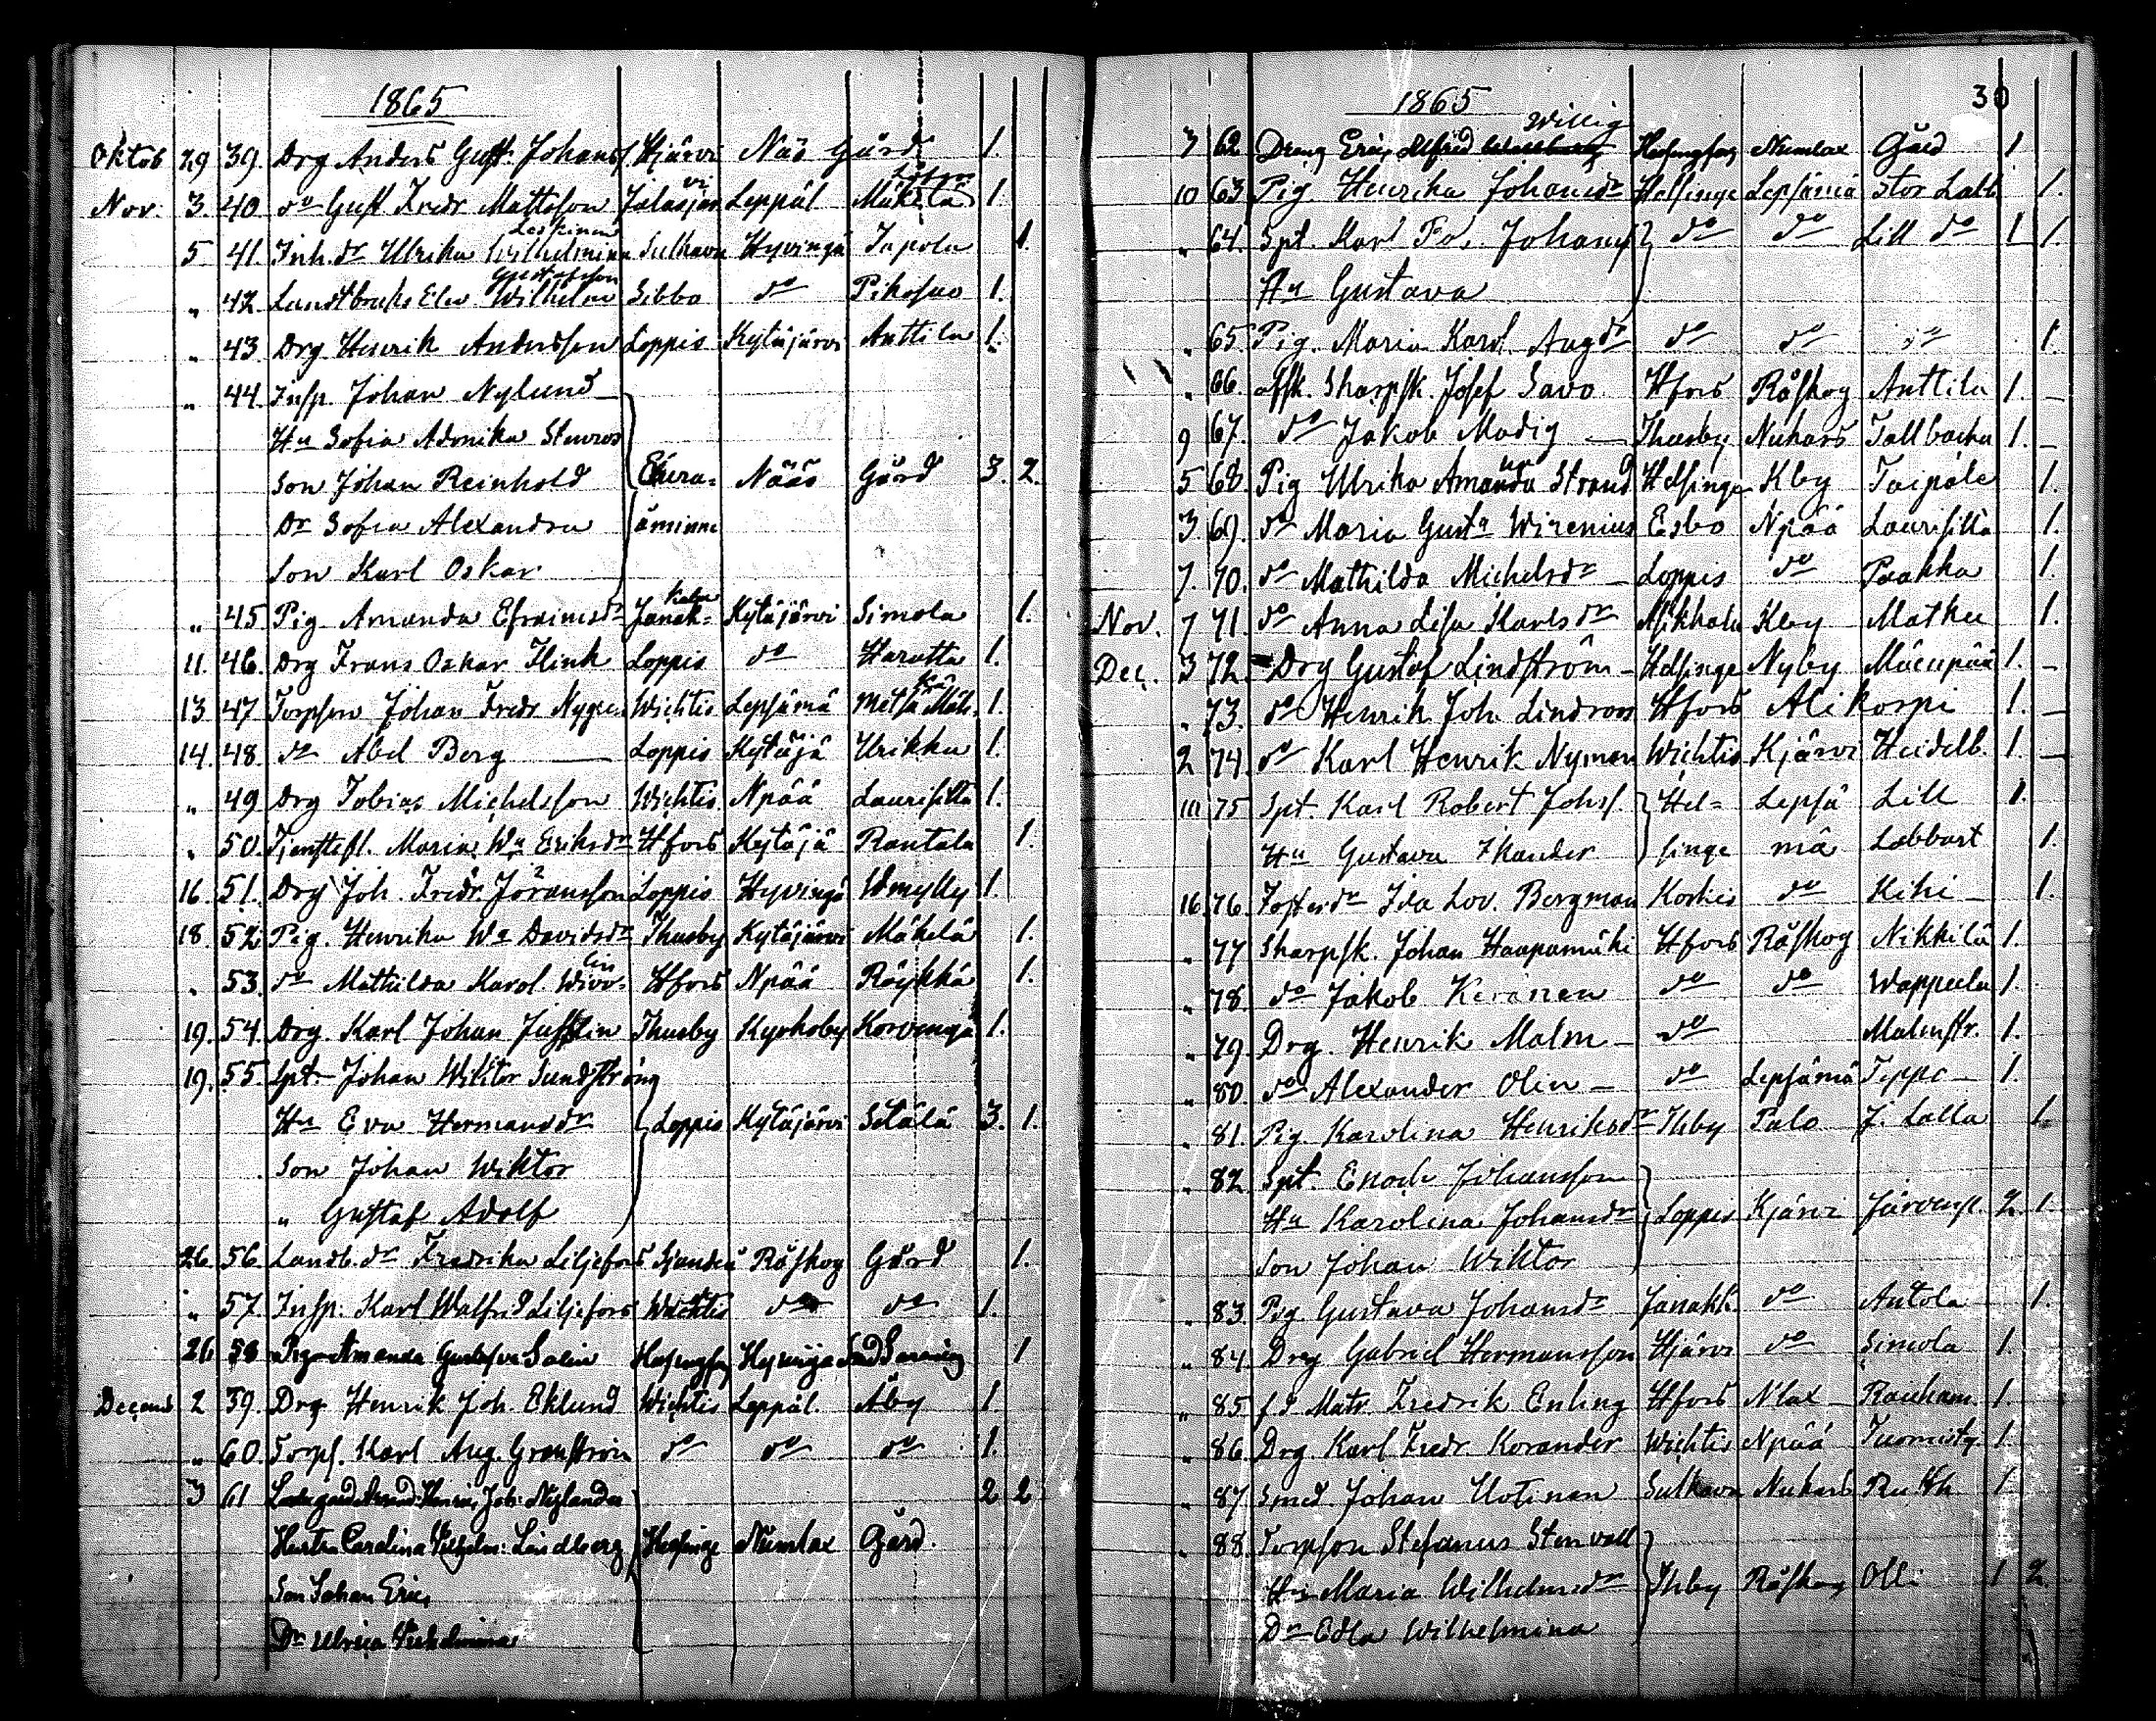 1865
Oktob 29 39. Drg Anders Gust. Johans. Hjärvi Näs Gård 1.
Nov. 3. 40 do Gust. Fredr Mattsson Jalasjärvi Leppäl Mäkelä 1.
5 41. Inh. dr Ulrika Wilhelmina Leskinen Sulkava Hyvingä Jupola 1.
" 42 Landtbruks Elev Wilhelm Gustafsson Sibbo do Pikosuo 1.
" 43 Drg Henrik Andersson Loppis Kytäjärvi Anttila 1.
" 44. Insp. Johan Nylund
Hu Sofia Adonika Stenros
Son Johan Reinhold Ekerö= Nääs Gård 3. 2.
Dr Sofia Alexandra åminne
Son Karl Oskar
" 45 Pig Amanda Efraimsdr Janak= kala Kytäjärvi Simola 1.
11. 46. Drg Frans Oskar Flink Loppis do Haratta 1.
13 47 Torpson Johan Fredr Nygren Wichtis Lepsämä Metsä 1.
14. 48. do Abel Berg Loppis Kytäjä Urikka 1.
" 49 Drg Tobias Michelsson Wichtis Npää Laurisilta 1.
" 50 Tjenstefl. Maria Wa Eriksdr Hfors Kytäjä Rantala 1.
16. 51. Drg Joh. Fredr. Göransson Loppis Hyvingä Wmylly 1.
18. 52 Pig. Henrika Wa Davidsdr Thusby Kytäjärvi Mäkelä 1.
" 53. do Mathilda Karol. Wiro= Hfors Npää Röykkä 1.
19. 54. Drg. Karl Johan Jusslin Thusby Kyrkoby Korvenoja 1.
19. 55. Spt. Johan Wiktor Sundström
Hu Eva Hermansdr Loppis Kytäjärvi Setälä 3. 1.
Son Johan Wiktor
" Gustaf Adolf
26. 56. Landb. dr Fredrika Liljefors Sjundeå Råskog Gård 1.
" 57. Insp. Karl Walfrid Liljefors Wichtis do do 1.
26 58 Piga Amanda Gustafva Salin Helsingfors Hyvinge 1
Decemb 2 59. Drg Henrik Joh. Eklund Wichtis Leppäl. Åby 1.
" 60. Torps. Karl Aug. Granström do do do 1.
3 61 Henric Joh. Nylander 2 2
Hustru Carolina Vilhelm: Lindberg Helsinge Numlax Gård.
Son Johan Eric
Dr Ulrica Vilhelmina
1865 30
3 62 Dreng Eric Alfred Willig Helsingfors Numlax Gård 1
10 63 Pig. Henrika Johansdr Helsinge Lepsämä Stor Labb 1.
" 64. Spt. Karl Johans. do do Lill do 1 1.
Hu Gustava
" 65. Pig. Maria Karol. Augdr do do do 1.
" 66. Afsk. Skarpsk. Josef Savo Hfors Råskog Anttila 1.
9 67. do Jakob Modig Thusby Nukars Tallbacka 1.
5 68. Pig Ulrika Amanda Strand Helsinge Kby Taipale 1.
3. 69. do Maria Gusta Wirenius Esbo Npää Laurisilta 1.
7. 70. do Mathilda Michelsdr Loppis do Paakka 1.
Nov. 7 71. do Anna Lisa Karlsdr Kby Matku 1.
Dec. 3 72. Drg Gustaf Lindström Helsinge Nyby Mäenpää 1.
" 73. do Henrik Joh Lindroos Hfors Ali Korpi 1.
2 74. do Karl Henrik Nyman Wichtis Kjärvi Heidelb. 1.
10 75 Spt. Karl Robert Johss. Hel= Lepsä Lill 1.
Hu Gustava Zkander singe mä Labbart 1.
16. 76. Fosterdr Ida Lov. Bergman Koskis do Kihi 1.
" 77 Skarpsk. Johan Haapamäki Hfors Råskog Nikkilä 1.
" 78. do Jakob Keränen do do Wappula 1.
" 79. Drg. Henrik Malm do Malmstr. 1.
" 80. do Alexander Olin do Lepsämä Teppo 1.
" 81. Pig. Karolina Henriksdr Thby Palo J. Lalla 1.
" 82. Spt. Enoch Johansson
Hu Karolina Johansdr Loppis Kjärvi Järvensl. 2. 1.
Son Johan Wiktor
" 83. Pig. Gustava Johansdr Janakk. do Antola 1.
" 84. Drg Gabriel Hermansson Hjärvi do Simola 1.
" 85 f d Matr. Fredrik Enling Hfors Nlax Rauham. 1.
" 86. Drg. Karl Fredr. Korander Wichtis Npää 1.
" 87. Smed. Johan Hotinen Sulkava Nukars 1
" 88. Torpson Stefanus Stenvall
Hu Maria Wilhelmsdr Thby Råskog Olli 1 2.
Dr Edla Wilhelmina